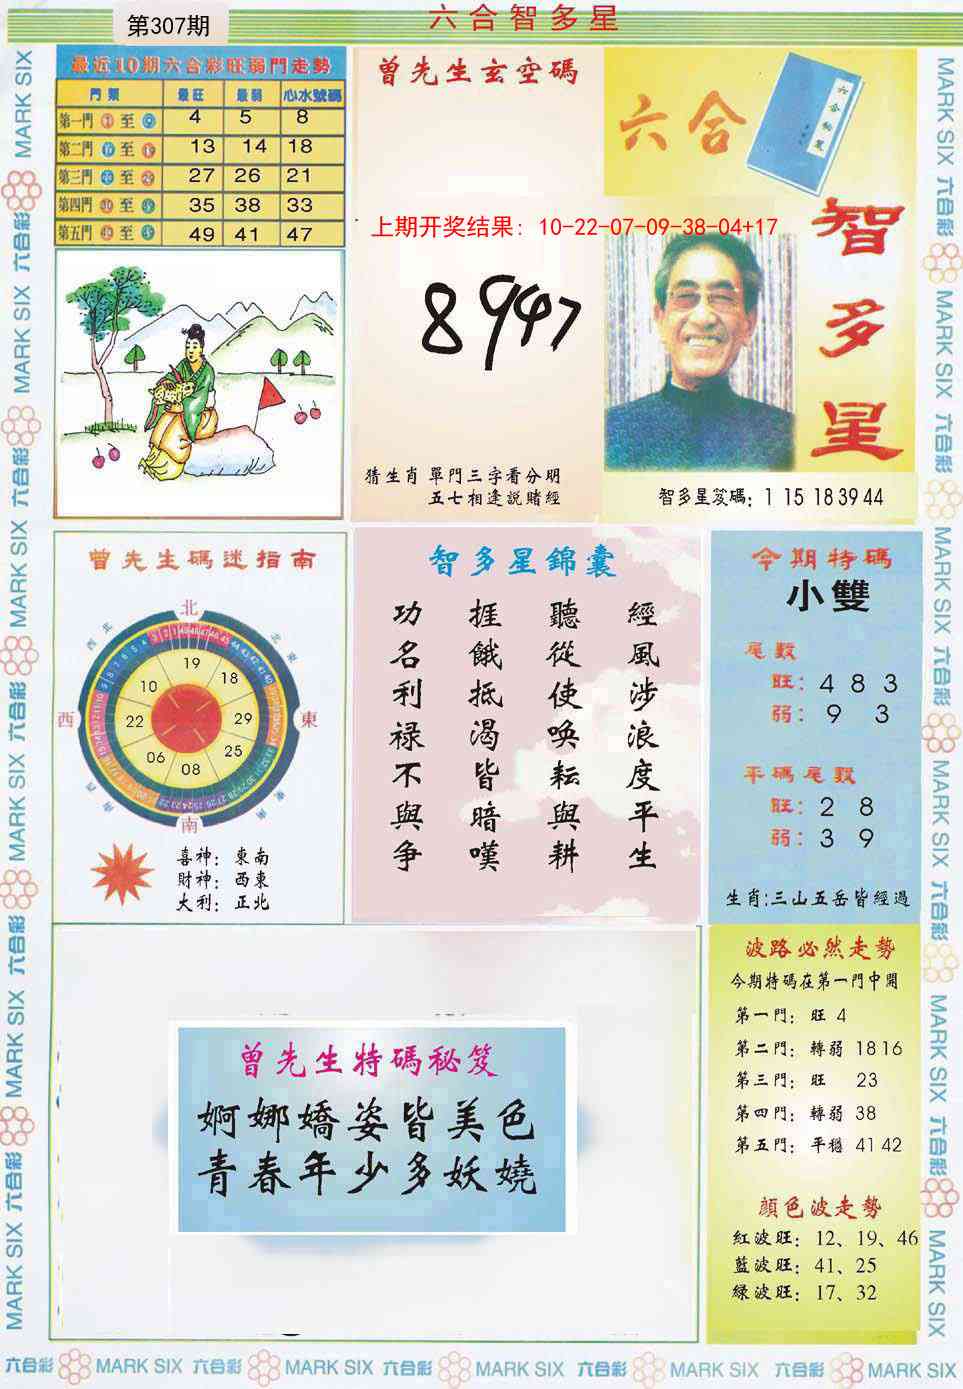 第307期
六合智多星
最近10期六合彩旺弱門走勢
門類 最旺 最弱 心水號碼
第一門 ① 至 ⑨ 4 5 8
第二門 至 13 14 18
第三門 至 27 26 21
第四門 至 35 38 33
第五門 至 49 41 47
曾先生玄空碼
上期开奖结果: 10-22-07-09-38-04+17
8947
猜生肖 單門三字看分明
五七相逢説賭經
六合
智多星
智多星笈碼: 1 15 18 39 44
曾先生碼迷指南
北
西北
東北
西
東
西南
東南
南
19
18
29
25
08
06
22
10
喜神: 東南
財神: 西東
大利: 正北
智多星錦囊
經風涉浪度平生
聽從使喚耘與耕
捱餓抵渴皆暗嘆
功名利禄不與争
今期特碼
小雙
尾數
旺: 4 8 3
弱: 9 3
平碼尾數
旺: 2 8
弱: 3 9
生肖:三山五岳皆經過
曾先生特碼秘笈
婀娜嬌姿皆美色
青春年少多妖嬈
波路必然走勢
今期特碼在第一門中開
第一門: 旺 4
第二門: 轉弱 18 16
第三門: 旺 23
第四門: 轉弱 38
第五門: 平穩 41 42
顔色波走勢
紅波旺: 12、19、46
藍波旺: 41、25
緑波旺: 17、32
MARK SIX 六合彩 MARK SIX 六合彩 MARK SIX 六合彩 MARK SIX 六合彩 MARK SIX 六合彩 MARK SIX
MARK SIX 六合彩 MARK SIX 六合彩 MARK SIX 六合彩 MARK SIX 六合彩 MARK SIX 六合彩 MARK SIX
六合彩 MARK SIX 六合彩 MARK SIX 六合彩 MARK SIX 六合彩 MARK SIX